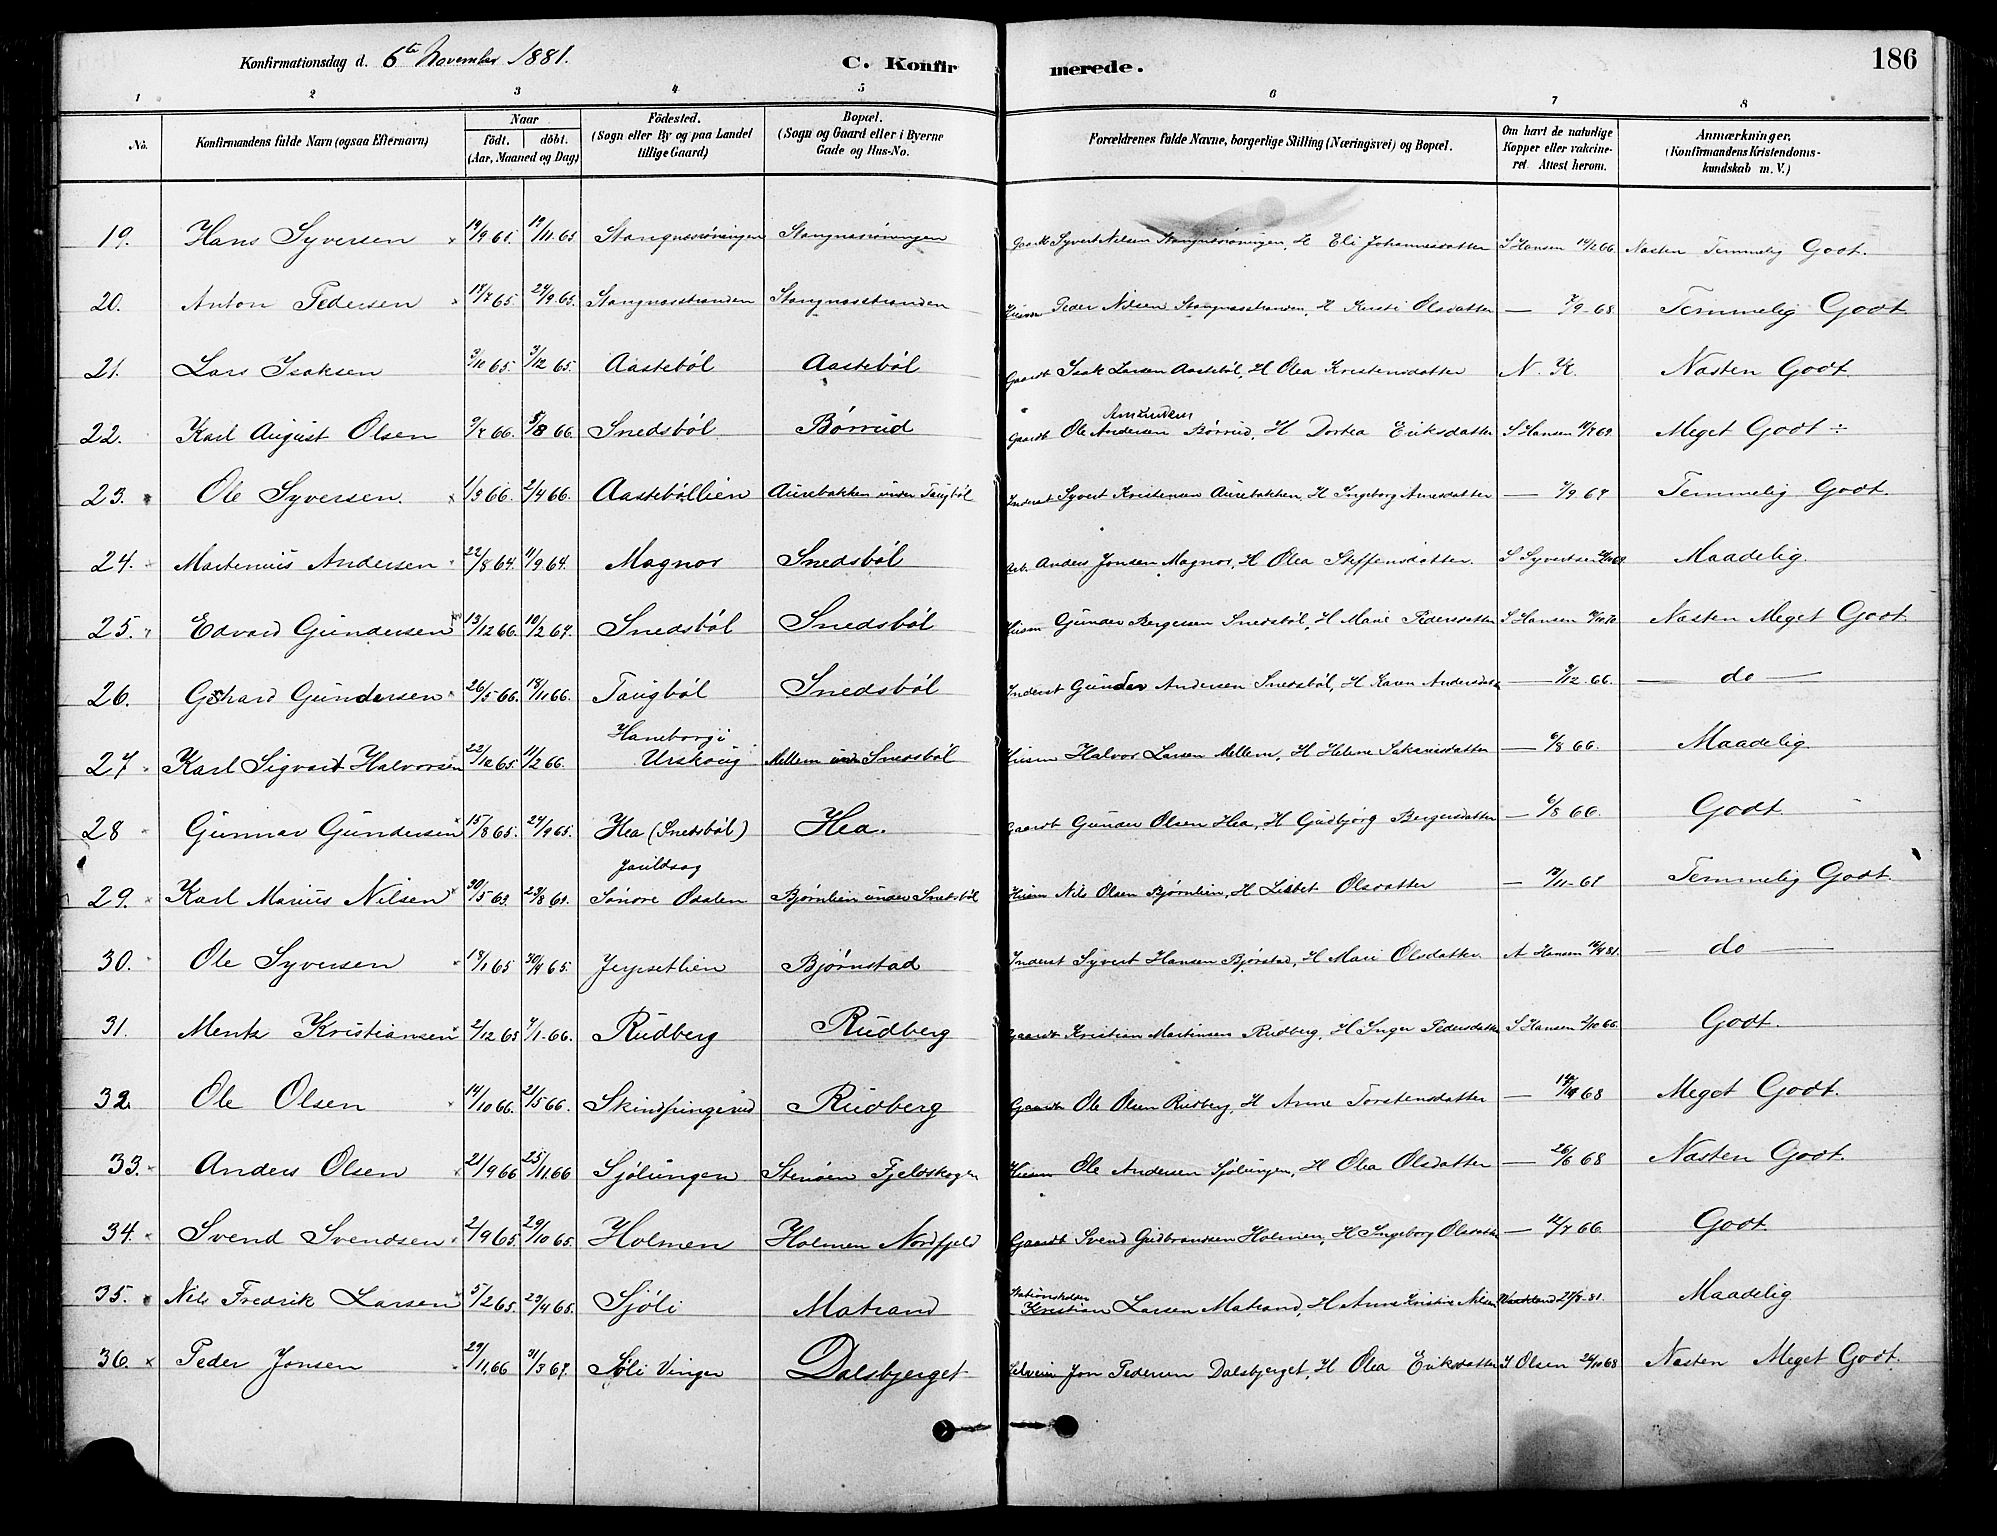 Konfirmationsdag d. 6te November 1881.
C. Konfirmerede.
186
1 2 3 4 5 6 7 8
No. Konfirmandens fulde Navn (ogsaa Efternavn) Naar født. døbt. (Aar, Maaned og Dag) Fødested. (Sogn eller By og paa Landet tillige Gaard) Bopæl. (Sogn og Gaard eller i Byerne Gade og Hus-No. Forældrenes fulde Navne, borgerlige Stilling (Næringsvei) og Bopæl. Om havt de naturlige Kopper eller vakcineret. Attest herom. Anmærkninger, (Konfirmandens Kristendomskundskab m. V.)
19. Hans Syversen 19/11 65 Stangnesrøningen Stangnesrøningen Syvert Nilsen Stangnesrøningen, H Eli Johannesdatter S Hansen 66. Næsten Temmelig Godt.
20. Anton Pedersen 24/9 65. Stangnesstranden Stangnesstranden Husm Peder Nilsen Stangnesstranden, H Kersti Olsdatter — 7/9-68. Temmelig Godt
21. Lars Isaksen 3/12 65. Aastebøl Aastebøl Gaardb Isak Larsen Aastebøl, H Olea Kristensdatter N. K. Næsten Godt.
22. Karl August Olsen 5/8 66. Snedsbøl Børrud Gaardb Ole Andersen Amundsen Børrud, H Dortea Eriksdatter S Hansen Meget Godt ÷
23. Ole Syversen. 1/3 66. 2/4 66. Aastebøllien Aurebakken under Taugbøl Inderst Syvert Kristensen Aurebakken, H Ingeborg Arnesdatter — 7/9 67 Temmelig Godt.
24. Martenius Andersen 22/8 64. 11/9 64. Magnor Snedsbøl Arb. Anders Jonsen Magnor, H Olea Steffensdatter. S Syvertsen Maadelig.
25. Edvard Gundersen 13/12 66. 10/2 67. Snedsbøl Snedsbøl Husm Gunder Bergesen Snedsbøl, H Marie Pedersdatter S Hansen Næsten Meget Godt
26. Gerhard Gundersen 26/5 66. 18/11 66. Taugbøl Snedsbøl Inderst Gunder Andersen Snedsbøl, H Karen Andersdatt — 9/12-66. — do —
27. Karl Sigvart Halvorsen 22/12 65. 11/2 66. Haneborg i Urskoug Mellem under Snedsbøl Husm Halvor Larsen Mellem, H Helene Johanisdatter — 6/8 66. Maadelig
28 Gunnar Gundersen 15/8 65. 24/9 65. Hea (Snedsbøl) Hea. Gaardb Gunder Olsen Hea, H Gudbjørg Bergersdatter — 6/8 66. Godt.
29. Karl Marius Nilsen 30/5 63. Søndre Odalen Bjørnlien under Snedsbøl Husm Nils Olsen Bjørnlien, H Lisbet Olsdatter — Temmelig Godt
30. Ole Syversen 18/1 65 30/4 65. Jerpsetlien Bjørnstad Inderst Syvert Hansen Bjørstad, H Mari Olsdatter. A Hansen — do —
31. Mentz Kristiansen 2/12 65 7/1-66. Rudberg Rudberg Gaardb Kristian Martinsen Rudberg, H Inger Pedersdatter S Hansen 2/10 66. Godt.
32 Ole Olsen 21/5 66. Skindpungerud Rudberg Gaardb Ole Olsen Rudberg, H Anne Torstensdatter — 68 Meget Godt.
33. Anders Olsen 21/9 66 25/11 66 Sjølungen Stensøen Fjeldskogen Husm Ole Andersen Sjølungen, H Olea Olsdatter — 26/6 68 Næsten Godt.
34. Svend Svendsen 2/9 65. 29/10 65. Holmen Holmen Nordfjeld Gaardb Svend Gudbrandsen Holmen, H Ingeborg Olsdatt — 12/7 66. Godt
35. Nils Fredrik Larsen 5/2 65. 23/4 65. Sjøli Matrand Kristian Larsen Matrand, H Anne Kristine Nilsen 27/8-81. Maadelig
36. Peder Jonsen 29/11 66 31/3 67. Søli Vinger Dalsbjerget Selveier Jon Pedersen Dalsbjerget, H Olea Eriksdatter S Olsen 24/10 68 Næsten Meget Godt.